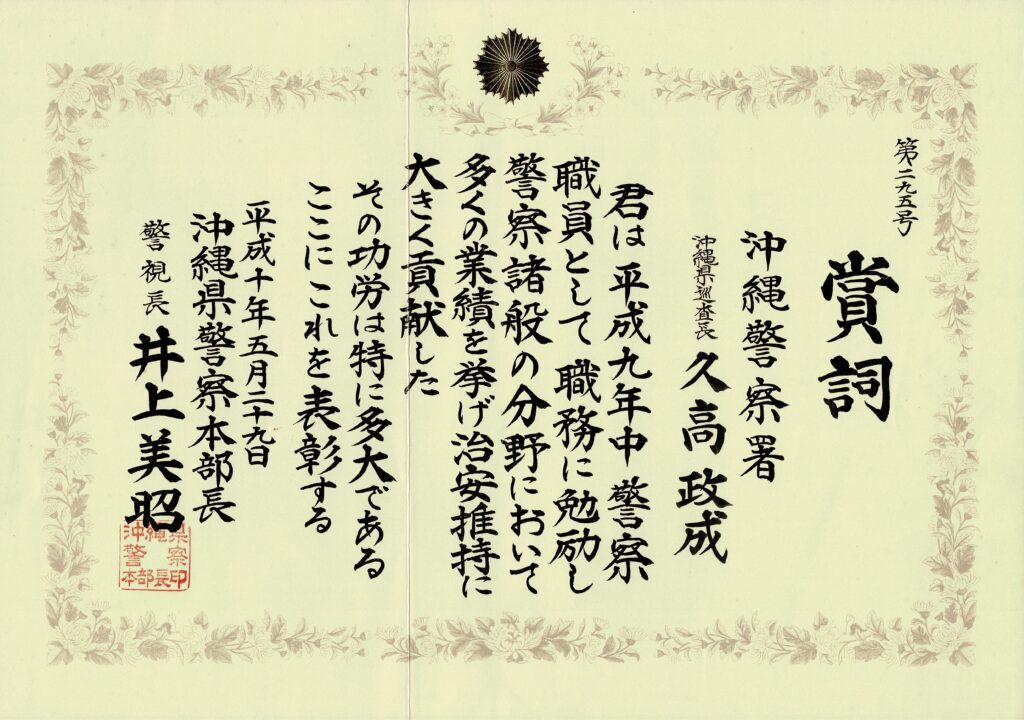 第二九五号
賞詞
沖縄警察署
沖縄県巡査長 久高政成
君は平成九年中 警察
職員として 職務に勉励し
警察諸般の分野において
多くの業績を挙げ治安推持に
大きく貢献した
その功労は特に多大である
ここにこれを表彰する
平成十年五月二十九日
沖縄県警察本部長
警視長 井上美昭
沖縄県警察本部長印